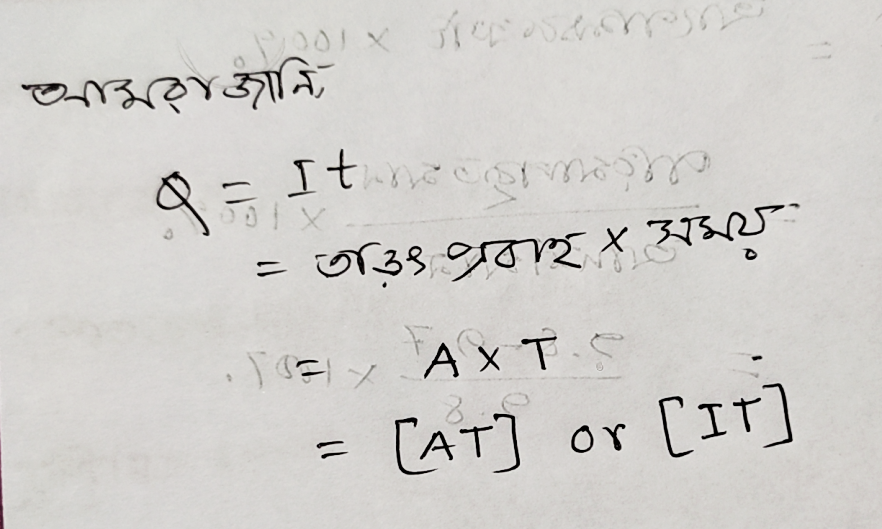 আমরা জানি,
Q = It
= তড়িৎ প্রবাহ × সময়
= A × T
= [AT] or [IT]